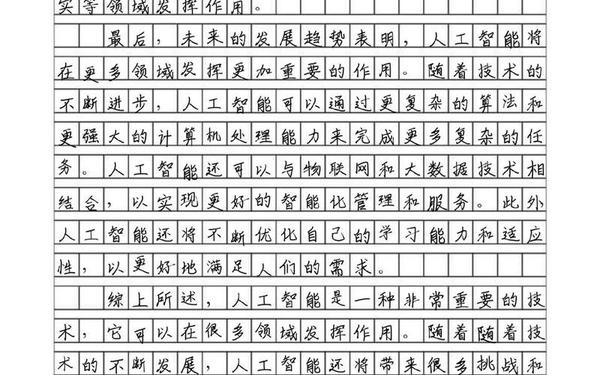 实等领域发挥作用。
最后，未来的发展趋势表明，人工智能将
在更多领域发挥更加重要的作用。随着技术的
不断进步，人工智能可以通过更复杂的算法和
更强大的计算机处理能力来完成更多复杂的任
务。人工智能还可以与物联网和大数据技术相
结合，以实现更好的智能化管理和服务。此外
人工智能还将不断优化自己的学习能力和适应
性，以更好地满足人们的需求。
综上所述，人工智能是一种非常重要的技
术，它可以在很多领域发挥作用。随着随着技
术的不断发展，人工智能还将带来很多挑战和